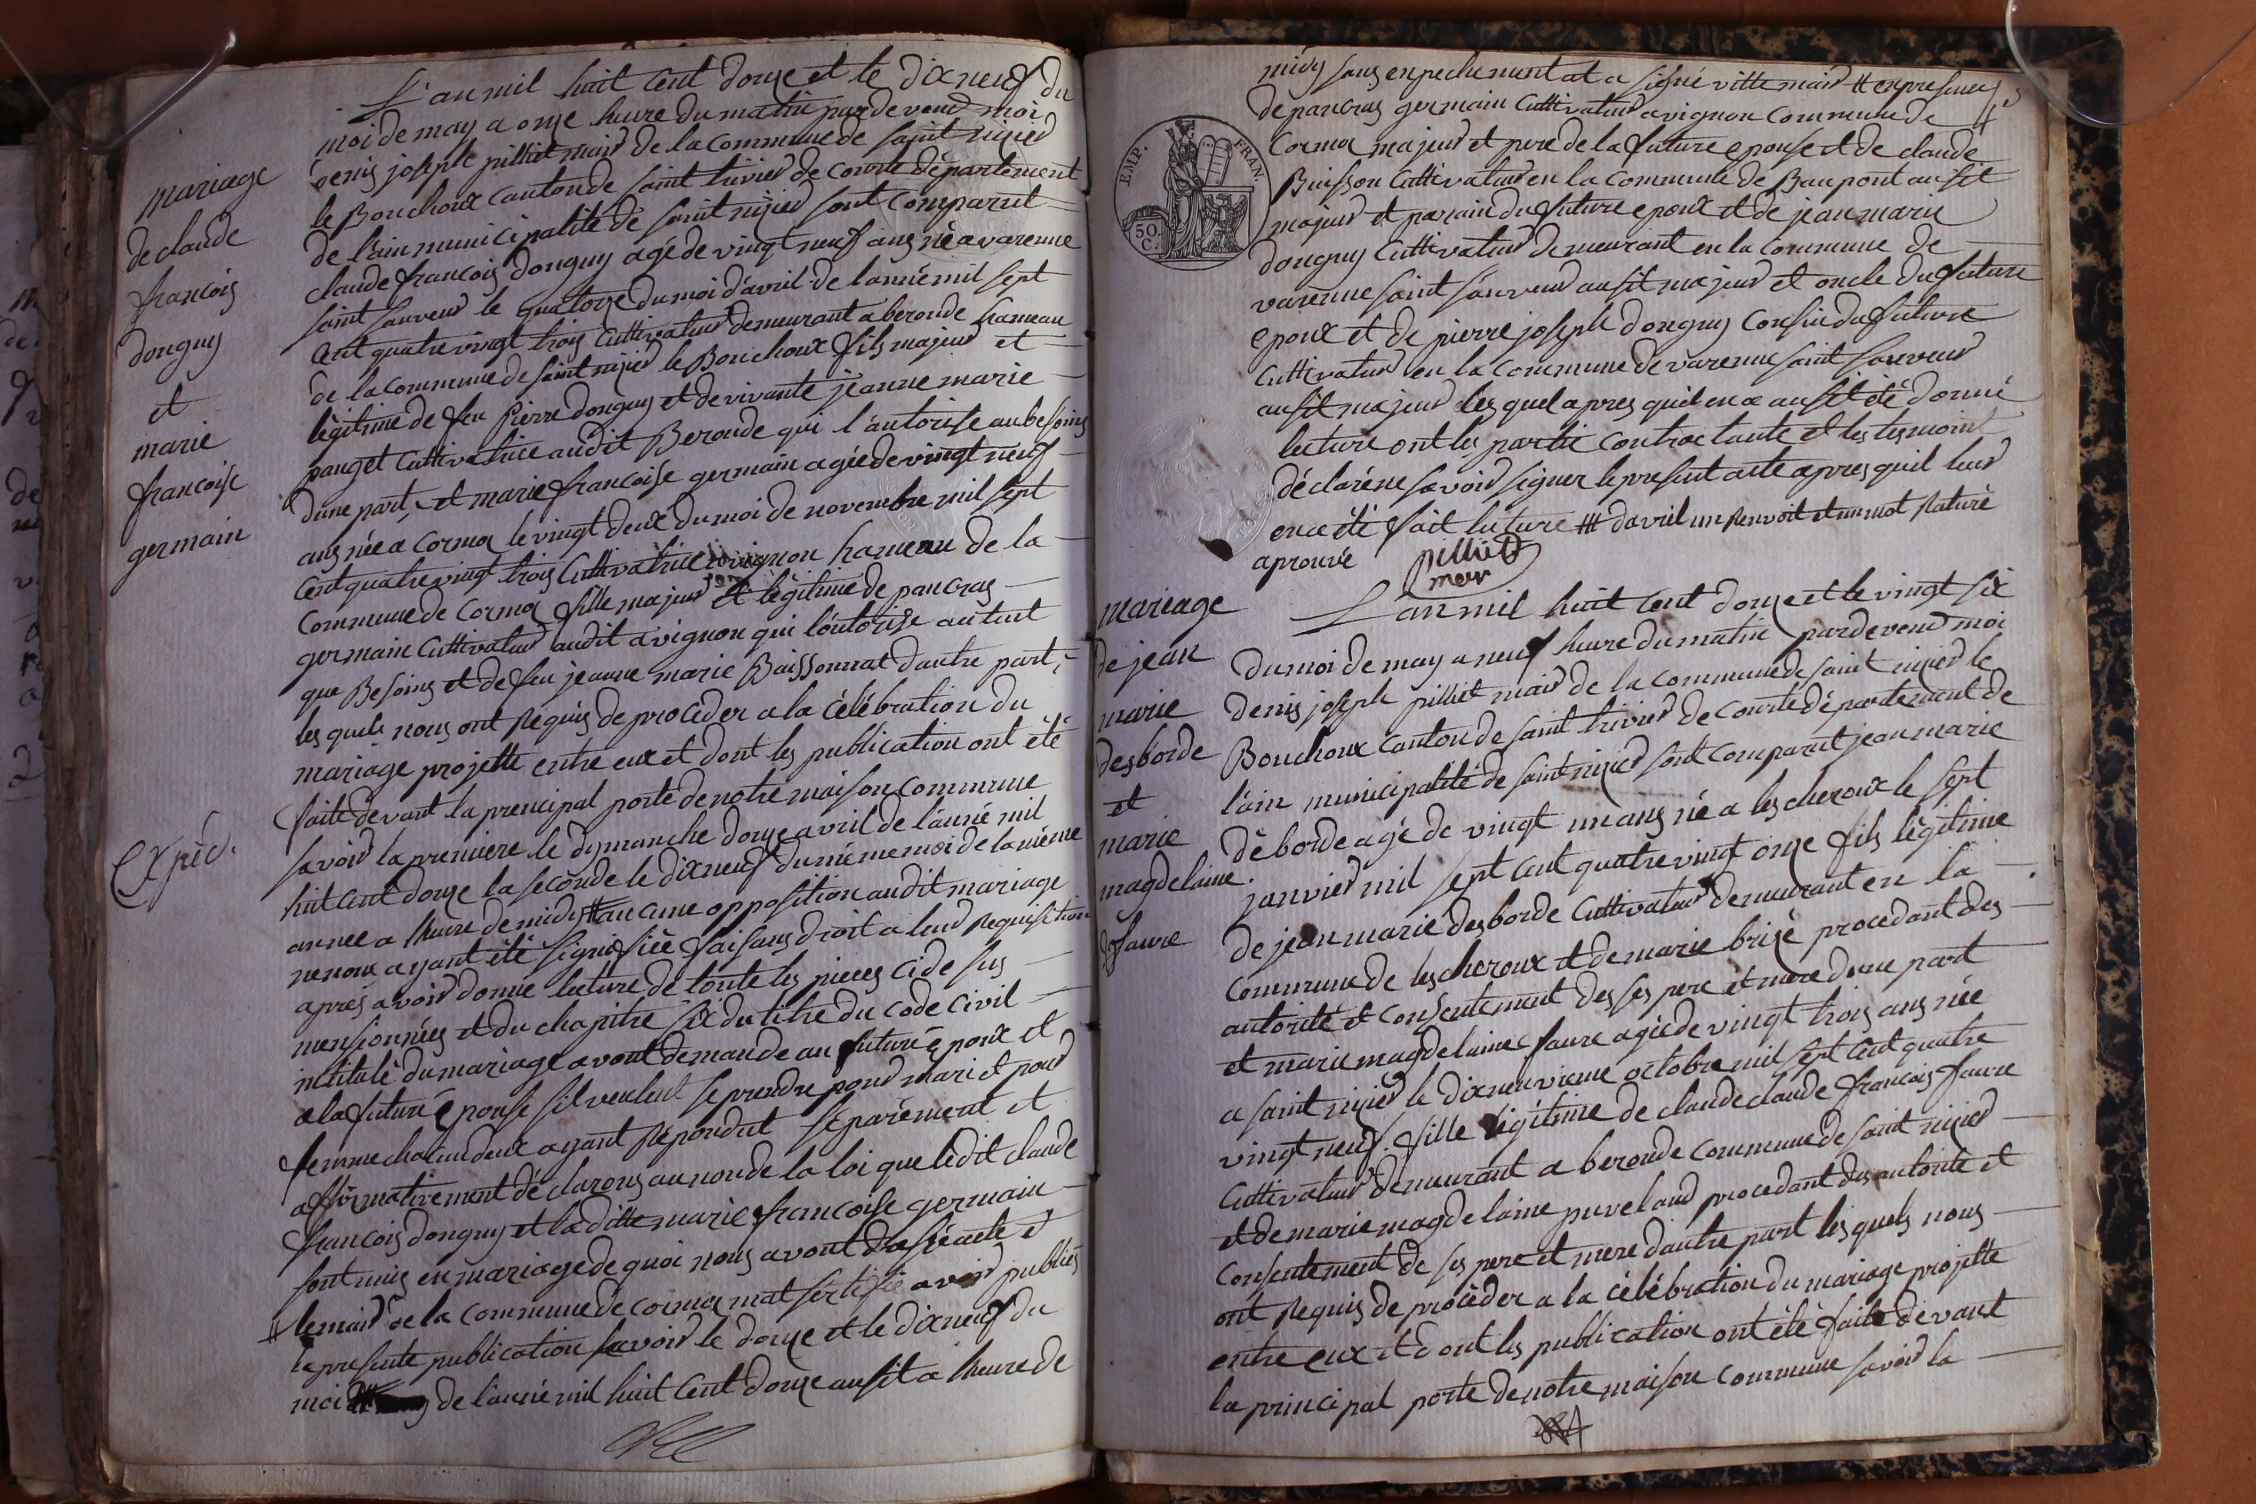 L'an mil huit cent douze et le dixneuf du
moi de may a onze heure du matin pardevend moi
denis joseph pilliet mair de la commune de saint nizier
le Bouchoux canton de saint trivier de courte département
de lain municipalité de saint nizier sont comparut
claude francois donguy agé de vingt neuf ans né a varenne
saint sauveur le quatorze du moi d'avril de lannée mil sept
cent quatre vingt trois cultivateur demeurant a beronde hameau
de la commune de saint nizier le Bouchoux fils majeur et
légitime de feu Pierre donguy et de vivante jeanne marie
panget cultivatrice audit Beronde qui l'autorise au besoins
dune part, et marie francoise germain agée de vingt neuf
ans née a Cormoz le vingt deux du moi de novembre mil sept
cent quatre vingt trois cultivatrice a vignon hameau de la
commune de Cormoz fille majeur et légitime de pancras
germain cultivateur audit a vignon qui l'autorise autant
que Besoins et de feu jeanne marie Buissonnat dautre part,
les quels nous ont Requis de proceder a la célébration du
mariage projette entre eux et dont les publication ont été
faite devant la prencipal porte de notre maison commune
savoir la premiere le dymanche douze avril de l'année mil
huit cent douze la seconde le dixneuf du méme moi de la méme
année a lheure de midy # aucune opposition audit mariage
ne nous ayant été signifiée faisans droit a leur Requisition
aprés avoir donne lecture de toute les pieces ci de sus
mensionnées et du chapitre six du titre du code civil
intitulé du mariage avont demande au futur époux et
a la future épouse sil veulent se prendre pour mari et pour
femme chacun deux ayant Repondut séparément et
affirmativement déclarons au nom de la loi que ledit claude
francois donguy et la ditte marie francoise germain
sont unis en mariage de quoi nous avont dressé acte et
# le mair de la commune de cormoz mat sertifié avoir publiés
la presente publication savoir le douze et le dixneuf du
moi de l'année mil huit cent douze ausit a lheure de
mariage
de claude
francois
donguy
et
marie
francoise
germain
Expéd.
midy sans enpechement at a signé ville mair # en presence
de pancras germain cultivateur a vignon commune de
Cormoz majeur et pere de la future epouse et de claude
Buisson cultivateur en la commune de Beaupont ausit
majeur et parain du future epoux et de jean marie
donguy cultivateur demeurant en la commune de
varenne saint sauveur ausit majeur et oncle du future
epoux et de pierre joseph donguy cousin du future
cultivateur en la commune de varenne saint sauveur
ausit majeur les quel apres quil en a ausit été donné
lecture ont les partie contractante et les tesmoint
déclaré ne savoir signer le present acte apres quil leur
en a été fait lecture ### davril un Renvoit et un mot Raturé
aprouvée
pilliet
mair
EMP. FRAN.
50. C.
mariage
de jean
marie
desborde
et
marie
magdelaine
faure
L'an mil huit cent douze et le vingt six
du moi de may a neuf heure du matin pardevend moi
denis joseph pilliet mair de la commune de saint nizier le
Bouchoux canton de saint trivier de courte département de
lain municipalité de saint nizier sont comparut jean marie
déborde agé de vingt un ans né a lescheroux le sept
janvier mil sept cent quatre vingt onze fils légitime
de jean marie desborde cultivateur demeurant en la
commune de lescheroux et de marie brizé procedant des
autorité et consentement des ses pere et mere dune part
et marie magdelaine faure agée de vingt trois ans née
a saint nizier le dixneuvieme octobre mil sept cent quatre
vingt neuf. fille légitime de claude claude francois faure
cultivateur demeurant a beronde commune de saint nizier
et de marie magdelaine puveland procedant des autorité et
consentement de ses pere et mere dautre part les quels nous
ont Requis de procéder a la célébration du mariage projette
entre eux et dont les publication ont été faite devant
la principal porte de notre maison commune savoir la